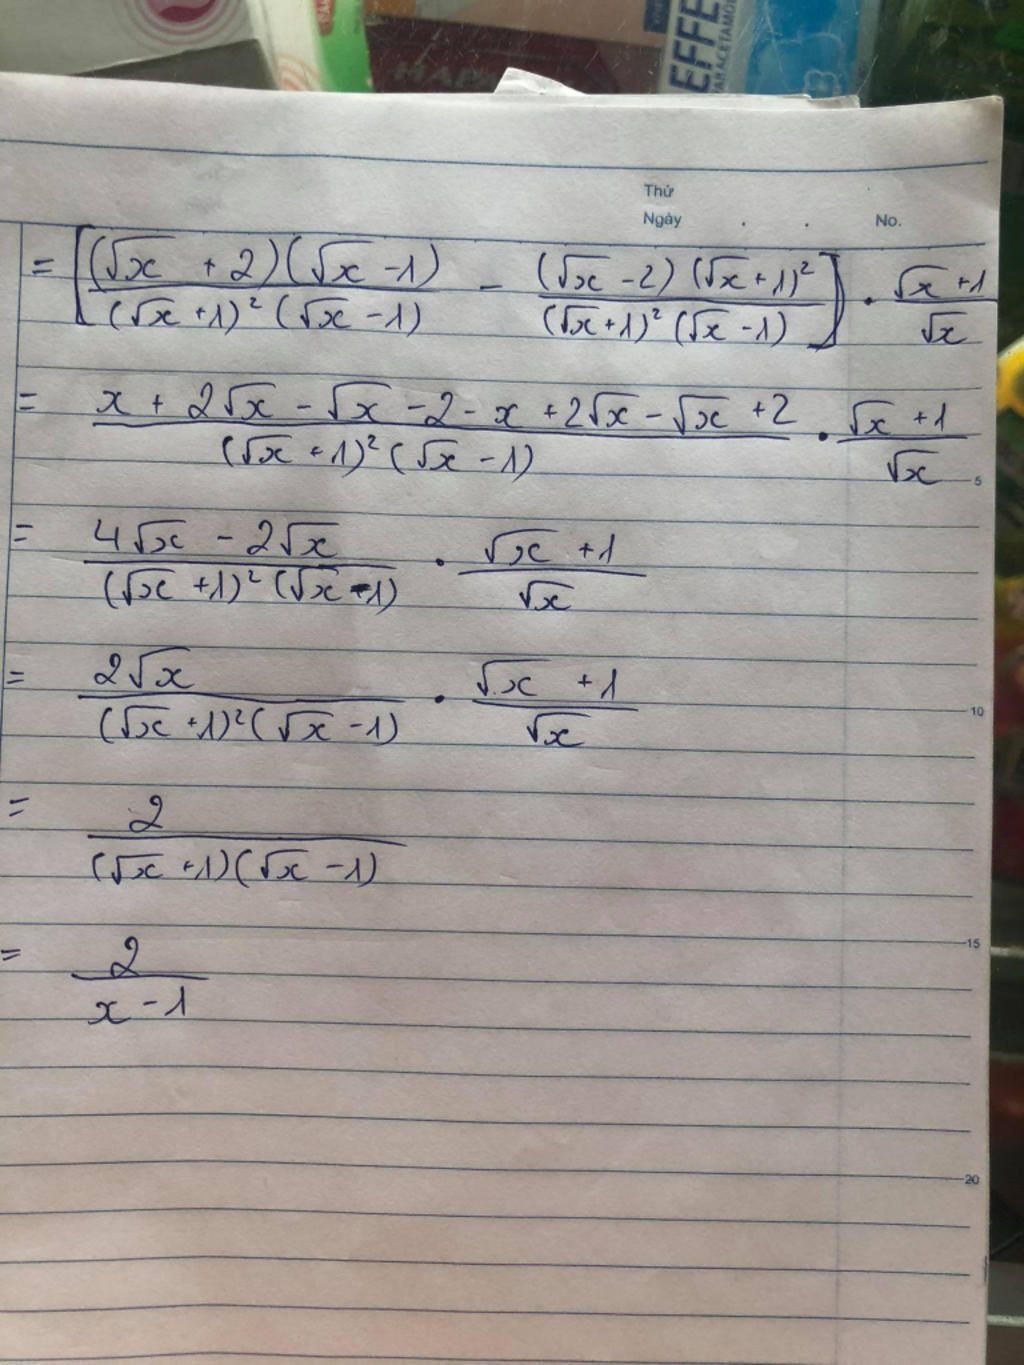 EFFE
PARACETAMOL
Thứ
Ngày . . No.
= [(√x + 2)(√x - 1) / (√x + 1)² (√x - 1) - (√x - 2) (√x + 1)² / (√x + 1)² (√x - 1)] . √x + 1 / √x
= x + 2√x - √x - 2 - x + 2√x - √x + 2 / (√x + 1)² (√x - 1) . √x + 1 / √x
5
= 4√x - 2√x / (√x + 1)² (√x - 1) . √x + 1 / √x
= 2√x / (√x + 1)² (√x - 1) . √x + 1 / √x
10
= 2 / (√x + 1)(√x - 1)
15
= 2 / x - 1
20